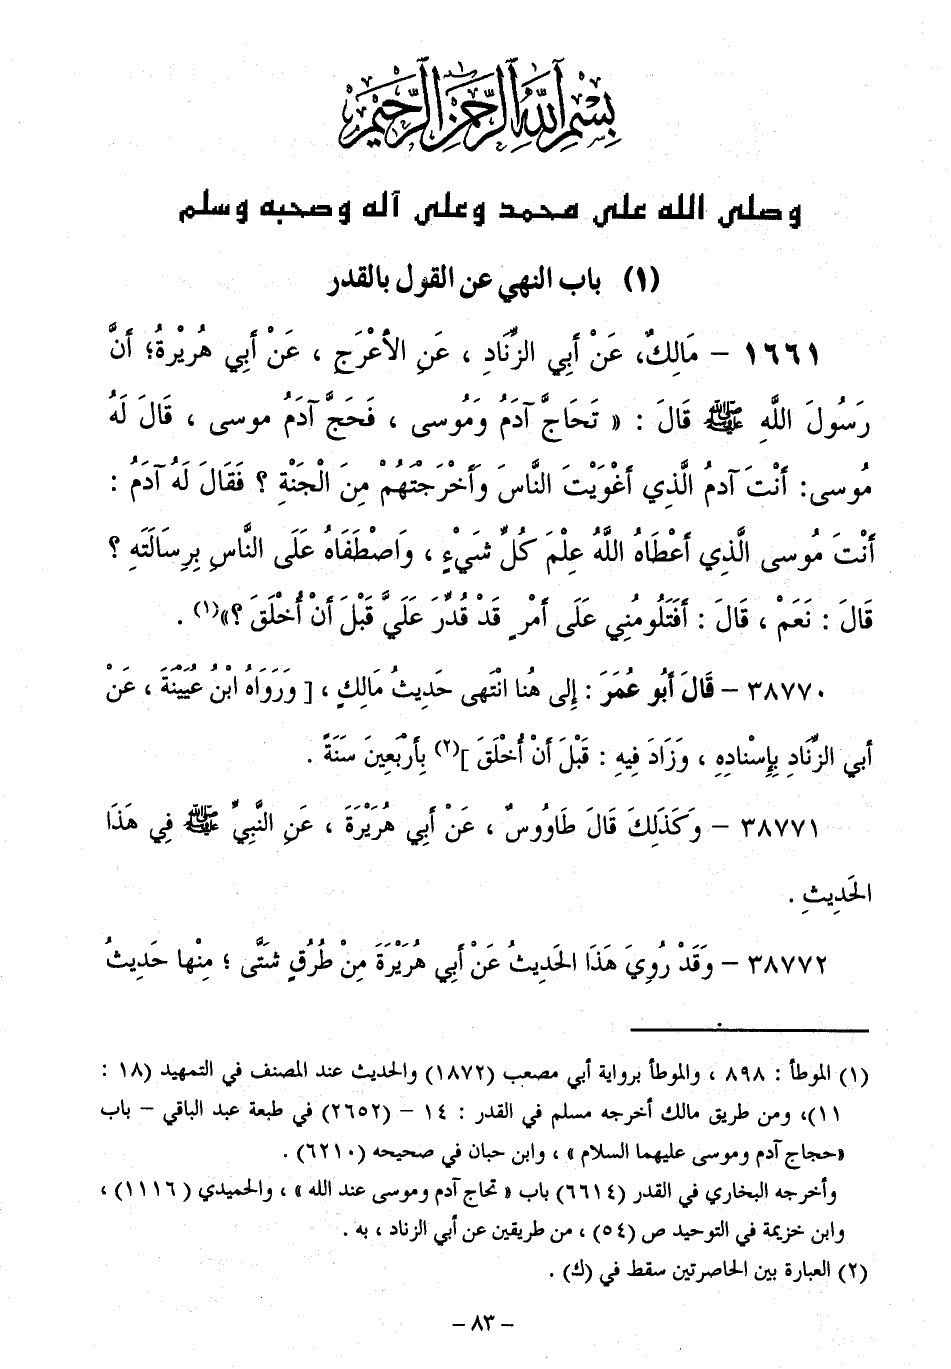 بِسْمِ اللَّهِ الرَّحْمَنِ الرَّحِيمِ
وصلى الله على محمد وعلى آله وصحبه وسلم
(١) باب النهي عن القول بالقدر
١٦٦١ – مَالِكٌ، عَنْ أَبِي الزِّنَادِ ، عَنِ الأَعْرَجِ ، عَنْ أَبِي هُرَيْرةُ؛ أَنَّ
رَسُولَ اللَّهِ ﷺ قَالَ : « تَحَاجَّ آدَمُ وَمُوسى ، فَحَجَّ آدَمُ موسى ، قَالَ لَهُ
مُوسى: أَنْتَ آدمُ الَّذِي أغْوَيْتَ النَّاسَ وَأَخْرَجتَهُمْ مِنَ الْجَنَّةِ ؟ فَقَالَ لَه آدَمُ :
أَنْتَ مُوسى الَّذِي أعْطَاهُ اللَّهُ عِلْمَ كُلِّ شَيْءٍ ، وَاصْطَفَاهُ عَلَى النَّاسِ بِرِسَالَتَهِ ؟
قَالَ : نَعَمْ ، قَالَ : أَفَتَلُومُنِي عَلَى أَمْرٍ قَدْ قُدِّرَ عَلَيَّ قَبْلَ أَنْ أُخْلَقَ ؟»(١) .
٣٨٧٧٠ – قَالَ أَبُو عُمَرَ : إِلى هُنا انْتَهى حَدِيثُ مَالِكٍ ، [ وَرَوَاهُ ابْنُ عُيَيْنَةَ ، عَنْ
أبي الزِّنَادِ بِإِسْنادِهِ ، وَزَادَ فِيهِ : قَبْلَ أَنْ أُخْلَقَ ](٢) بِأَرْبَعِينَ سَنَةً .
٣٨٧٧١ – وَكَذَلِكَ قَالَ طَاوُوسٌ ، عَنْ أَبِي هُرَيْرَةَ ، عَنِ النَّبِيِّ ﷺ فِي هَذَا
الحَدِيثِ .
٣٨٧٧٢ – وَقَدْ رُوِيَ هَذَا الحَدِيثُ عَنْ أَبِي هُرَيْرَةَ مِنْ طُرُقٍ شتَّى ؛ مِنْها حَدِيثُ
(١) الموطأ : ٨٩٨ ، والموطأ برواية أبي مصعب (١٨٧٢) والحديث عند المصنف في التمهيد (١٨ :
١١)، ومن طريق مالك أخرجه مسلم في القدر : ١٤ – (٢٦٥٢) في طبعة عبد الباقي – باب
«حجاج آدم وموسى عليهما السلام » ، وابن حبان في صحيحه (٦٢١٠) .
وأخرجه البخاري في القدر (٦٦١٤) باب « تحاج آدم وموسى عند الله » ، والحميدي (١١١٦) ،
وابن خزيمة في التوحيد ص (٥٤) ، من طريقين عن أبي الزناد ، به .
(٢) العبارة بين الحاصرتين سقط في (ك) .
– ٨٣ –